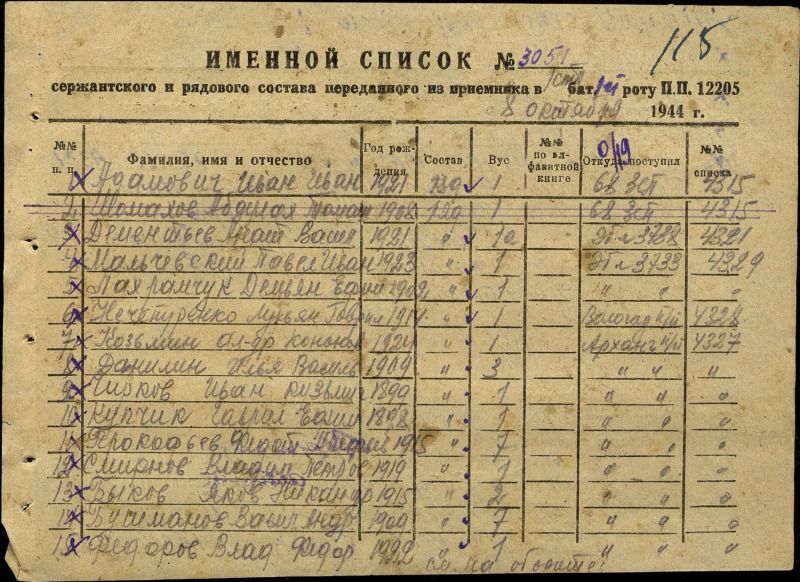 115
ИМЕННОЙ СПИСОК № 3051
сержантского и рядового состава переданного из приемника в 1 стр бат. 1 роту П.П. 12205
8 октября 1944 г.
№№ п. п. Фамилия, имя и отчество Год рождения Состав Вус №№ по алфавитной книге Откуда поступил №№ списка
1 Адамович Иван Иван 1921 1 68 Зсп 4315
2 Абдулла 1908 1 68 Зсп 4315
3 Дементьев Васил 1921 " 1а Эт л 3788 4321
4 Мальчевский Павел Иван 1923 " 1 Эт л 3733 4329
5 Лахранчук Демьян 1902 " 1 " " "
6 Нечипуренко Лукьян Гаврил 1914 " 1 Вологод 4328
7 Козьмин Ал-др Конон 1924 " 1 Арханг 4327
8 Данилин Илья Василь 1909 " 3 " " "
9 Чирков Иван Кузьмич 1890 " 1 " " "
10 Купчик 1898 " 1 " " "
11 Прокофьев Федот 1915 " 7 " " "
12 Смирнов Владим Петров 1919 " 1 " " "
13 Быков Яков Никанор 1915 " 2 " " "
14 Бусыманов Васил Андр 1909 " 7 " " "
15 Федоров Влад Федор 1922 1 " " "
см на обороте